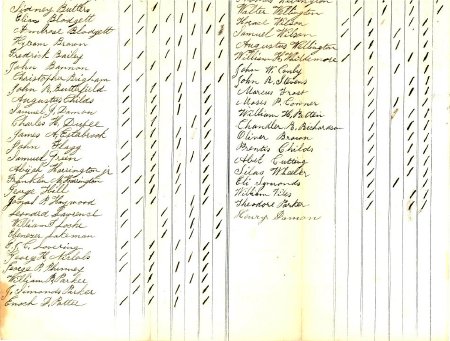 Sidney Butters
Elias Blodgett
Ambrose Blodgett
Hyram Brown
Fredrick Bailey
John Bannon
Christopher Brigham
John R. Butterfield
Augustus Childs
Samuel J. Damon
Charles H.
James A. Estabrook
John Flagg
Samuel Green
Abijah Harrington jr
Franklin Harrington
George Hall
Jonas Haywood
Leonard Lawrence
William Locke
Ebenezer Lakeman
Lovering
George H. Nichols
George Phinney
William R. Parker
J. Simonds Parker
Enoch Potter
Walter Wellington
Horace Wilson
Samuel Wilson
Augustus Wellington
William H.
John W. Conly
John R. Stevens
Marcus Frost
Moses P. Conner
William H. Batten
Chandler R. Richardson
Oliver Brown
Prentis Childs
Abel Cutting
Silas Wheeler
Eli Symonds
William Viles
Theodore Parker
Henry Damon